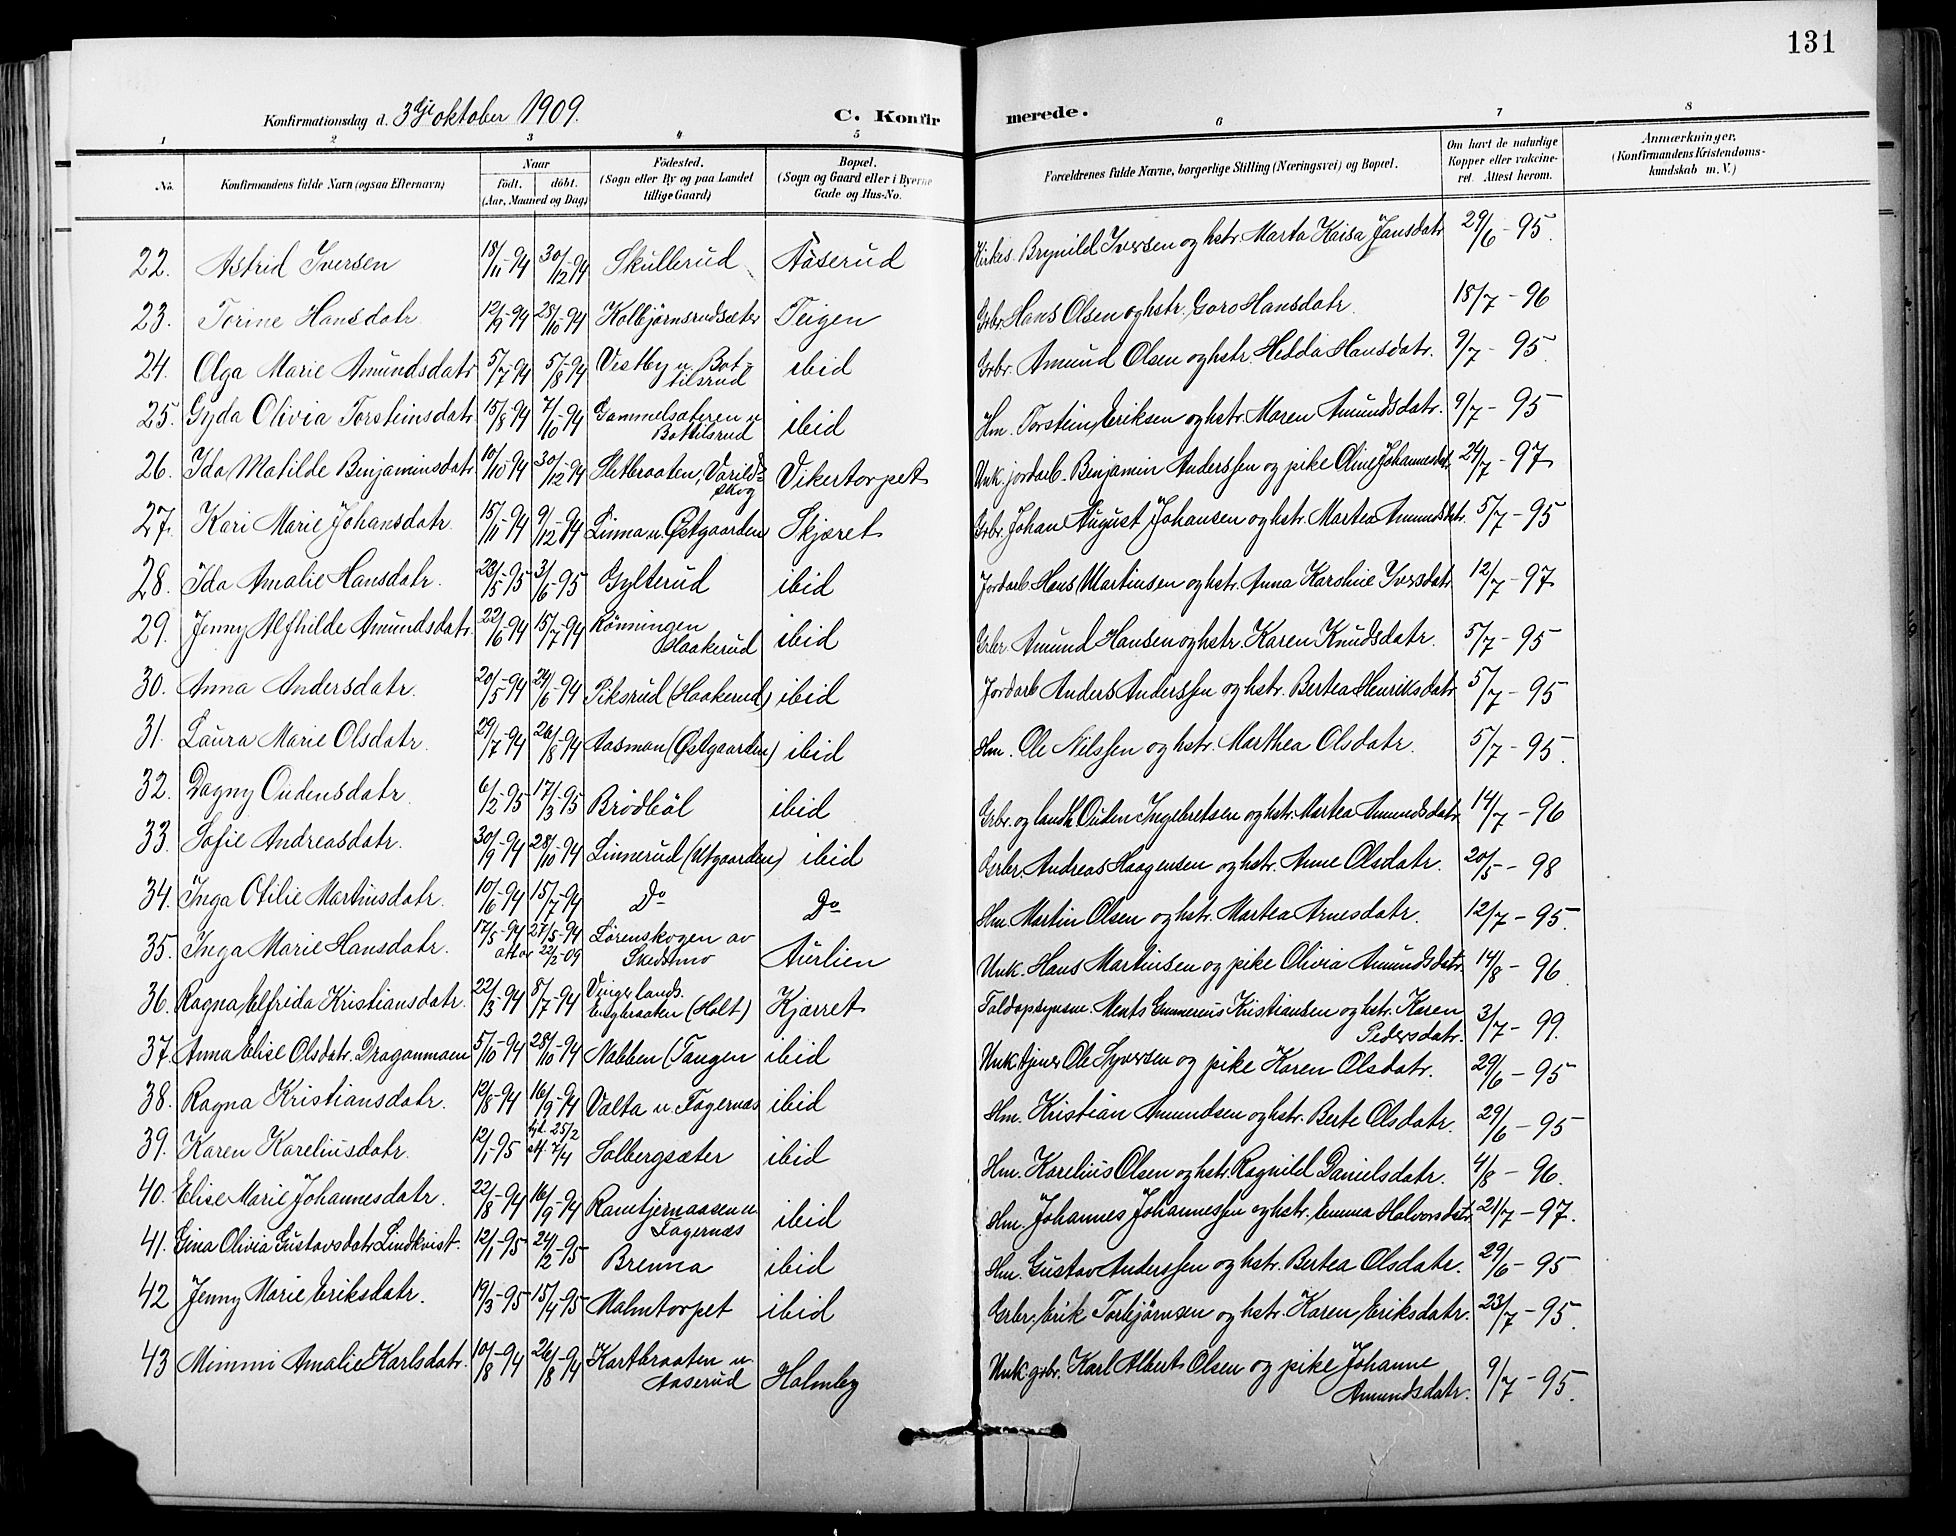 131
Konfirmationsdag d. 3dje oktober 1909.
C. Konfirmerede.
1 2 3 4 5 6 7 8
No. Konfirmandens fulde Navn (ogsaa Efternavn) Naar født. døbt. (Aar, Maaned og Dag) Fødested. (Sogn eller By og paa Landet tillige Gaard) Bopæl. (Sogn og Gaard eller i Byerne Gade og Hus-No. Forældrenes fulde Navne, borgerlige Stilling (Næringsvei) og Bopæl. Om havt de naturlige Kopper eller vakcineret. Attest herom. Anmærkninger. (Konfirmandens Kristendomskundskab m. V.)
22. Astrid Iversen 18/11-94 30/12-94 Skullerud Aaserud Kirkes. Brynild Iversen og hstr. Marta Kaisa Jansdatr 29/6-95.
23. Torine Hansdatr 12/9-94 28/10-94 Kolbjørnsrudsæter Teigen Grbr. Hans Olsen og hstr. Goro Hansdatr. 18/7-96
24. Olga Marie Amundsdatr 5/7-94 5/8-94 Vestby u. Bottilsrud ibid Grbr. Amund Olsen og hstr. Hedda Hansdatr. 9/7-95.
25. Gyda Olivia Torsteinsdatr 15/8-94 7/10-94 Gammelsæteren u Bottilsrud ibid Hm. Torstein Eriksen og hstr. Maren Amundsdatr. 9/7-95
26. Ida Matilde Benjaminsdatr 10/10-94 30/12-94 Sletbraaten, Varildskog Vikertorpet Unk. jordarb. Benjamin Anderssen og pike Oline Johannesdatr. 24/7-97
27. Kari Marie Johansdatr. 15/11-94 9/12-94 Linna u. Østgaarden Skjæret Grbr. Johan August Johansen og hstr. Martea Amundsdatr. 5/7-95
28. Ida Amalie Hansdatr. 23/5-95 3/6-95 Gylterud ibid Jordarb. Hans Martinsen og hstr. Anna Karoline Iversdatr 12/7-97
29. Jenny Alfhilde Amundsdatr. 22/6-94 15/7-94 Rønningen Haakerud ibid Grbr. Amund Hansen og hstr. Karen Knudsdatr. 5/7-95
30. Anna Andersdatr. 20/5-94 24/6-94 Piksrud (Haakerud) ibid Jordarb Anders Anderssen og hstr. Bertea Henriksdatr 5/7-95
31. Laura Marie Olsdatr. 29/7-94 26/8-94 Aasman (Østgaarden) ibid Hm. Ole Nilssen og hstr. Marthea Olsdatr. 5/7-95.
32. Dagny Oudensdatr 6/2-95 17/3-95 Brødbøl ibid Grbr. og landh. Ouden Ingebretsen og hstr. Martea Amundsdatr 14/7-96
33. Sofie Andreasdatr. 30/9-94 28/10-94 Linnerud (Utgaarden) ibid Grbr. Andreas Haagensen og hstr. Anne Olsdatr. 20/5-98
34. Inga Otilie Martinsdatr. 10/6-94 15/7-94 Do Do Hm. Martin Olsen og hstr. Martea Arnesdatr. 12/7-95.
35. Inga Marie Hansdatr. 17/5-94 27/5-94 Lørenskogen av Skedsmo Aurlien Unk. Hans Martinsen og pike Olivia Amundsdatr. 14/8-96
att av 22/2-09
36. Ragna Elfrida Kristiansdatr. 22/3-94 8/7-94 Vinger lands. Engbraaten (Holt) Kjærret Toldopsynsm. Ments Gunnerius Kristiansen og hstr. Karen Pedersdatr. 3/7-99.
37. Anna Elise Olsdatr. Draganmoen 5/10-94 28/10-94 Nabben (Tangen ibid Unk tjener Ole Syversen og pike Karen Olsdatr. 29/6-95
38. Ragna Kristiansdatr. 12/8-94 16/9-94 Valta u. Fagernæs ibid Hm. Kristian Amundsen og hstr. Berte Olsdatr. 29/6-95
39. Karen Kareliusdatr. 12/1-95 25/2 7/4 Solbergsæter ibid Hm. Karelius Olsen og hstr. Ragnild Danielsdatr. 4/8-96.
40. Elise Marie Johannesdatr. 22/8-94 16/9-94 Ramtjernaasen u. Fagernæs ibid Hm. Johannes Johannessen og hstr. Emma Halvorsdatr. 21/7-97.
41. Gina Olivia Gustavsdatr Lindkvist. 12/1-95 24/2-95 Brenna ibid Hm. Gustav Anderssen og hstr. Bertea Olsdatr. 29/6-95
42 Jenny Marie Eriksdatr. 19/3-95 15/4-95 Malmtorpet ibid Grbr. Erik Torbjørnsen og hstr. Karen Eriksdatr. 23/7-95.
43 Mimmi Amalie Karlsdatr. 10/8-94 26/8-94 Kartbraaten u. Aaserud Holmby Unk. grbr. Karl Albert Olsen og pike Johanne Amundsdatr. 9/7-95.